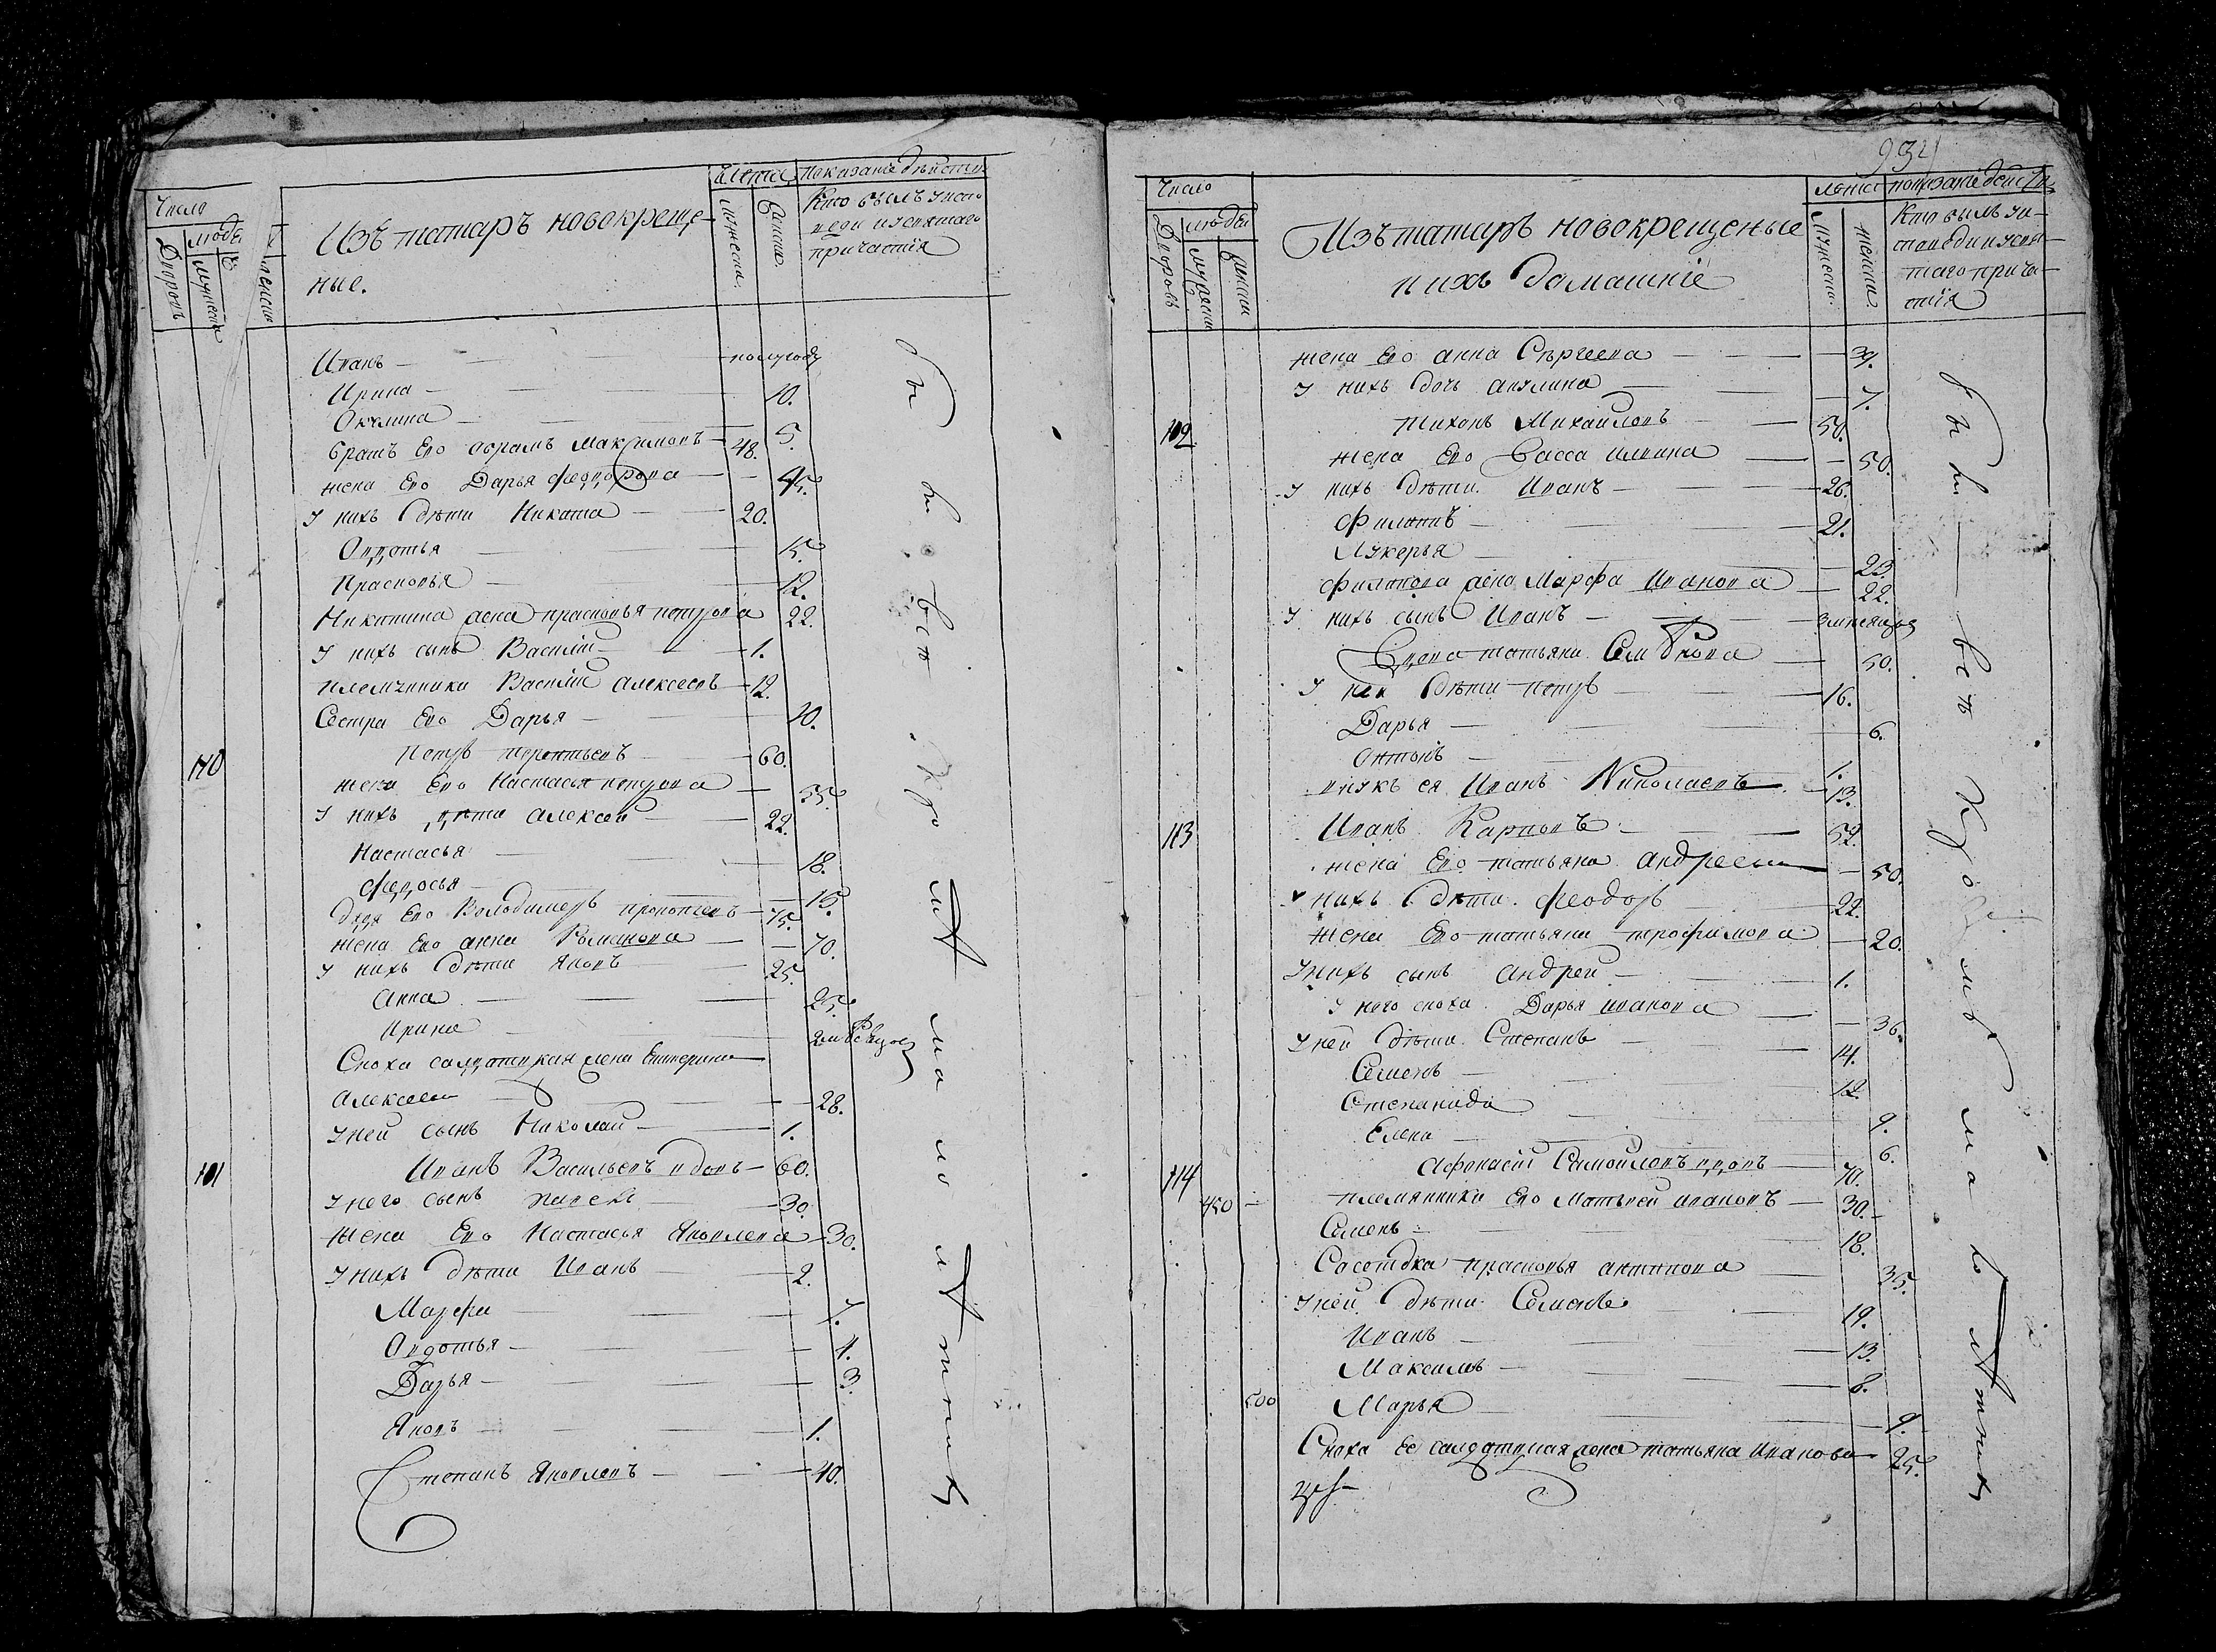 Число
людей
Дворовъ
мужеска
женска
Изъ татаръ новокреще-
ные.
Лета
мужеска
женска
показание действия
Кто былъ у испо-
веди и у святаго
причастия
Иванъ — полугоду
Ирина — 10.
Окулина — 5.
братъ Ево абрамъ Максимовъ — 48.
жена Ево Дарья федорова — 45.
У нихъ дѣти Никита — 20.
Овдотья — 15.
Прасковья — 12.
Никитина жена прасковья петрова 22.
У нихъ сынъ Василій — 1.
племянники Василій алексеевъ — 12.
Сестра Ево Дарья — 10.
110 Петръ терентьевъ — 60.
жена Ево Настасья петрова — 55.
У нихъ дѣти алексей — 22.
Настасья — 18.
федосья — 15.
дядя Ево Володимеръ прокопьевъ — 75.
жена Ево анна Романова — 70.
У нихъ дѣти Яковъ — 25.
Анна — 25.
Ирина
Сноха салдатская жена Екатерина
Алексеева — 28.
У ней сынъ Николай — 1.
Иванъ Васильевъ вдовъ — 60.
У него сынъ — 30.
жена Ево Настасья Яковлева — 30.
У нихъ дѣти Иванъ — 2.
Марфа — 7.
Овдотья — 4.
Дарья — 3.
Яковъ — 1.
Степанъ Яковлевъ — 40.
бы
934
Число
людей
Дворовъ
мужеска
женска
Изъ татаръ новокрещеные
и ихъ домашніе
лета
мужеска.
женска
показание действия
Кто былъ у ис-
поведи и у свя-
таго прича-
стія
жена Ево анна Сергеева — 39.
У нихъ дочь акулина — 7.
Тихонъ Михаиловъ — 50.
жена Ево васса — 50.
У нихъ дѣти Иванъ — 26.
Филипъ — 21.
Лукерья — 23.
Филипова жена Марфа Иванова — 22.
У нихъ сынъ Иванъ — 3 месяцов
Вдова татьяна Семѣнова — 50.
У нея дѣти петръ — 16.
Дарья — 6.
антонъ — 1.
внукъ ея Иванъ Николаевъ — 13.
113 Иванъ Карповъ — 52.
жена Ево татьяна андреева — 50.
У нихъ дѣти феодоръ — 22.
жена Ево татьяна трофимова — 20.
У нихъ сынъ андрей — 1.
У него сноха Дарья иванова — 36.
У ней дѣти Степанъ — 14.
Семенъ — 12.
Степанида — 9.
Елена — 6.
114 Афонасій Самоиловъ вдовъ — 70.
племянники Ево Матвей ивановъ — 30.
Семенъ — 18.
Сосетка прасковья антипова — 35.
У ней дѣти Семенъ — 19.
Иванъ — 13.
Максимъ — 8.
500 Марья — 9.
Сноха Ее салдатская жена татьяна Иванова — 25.
бы